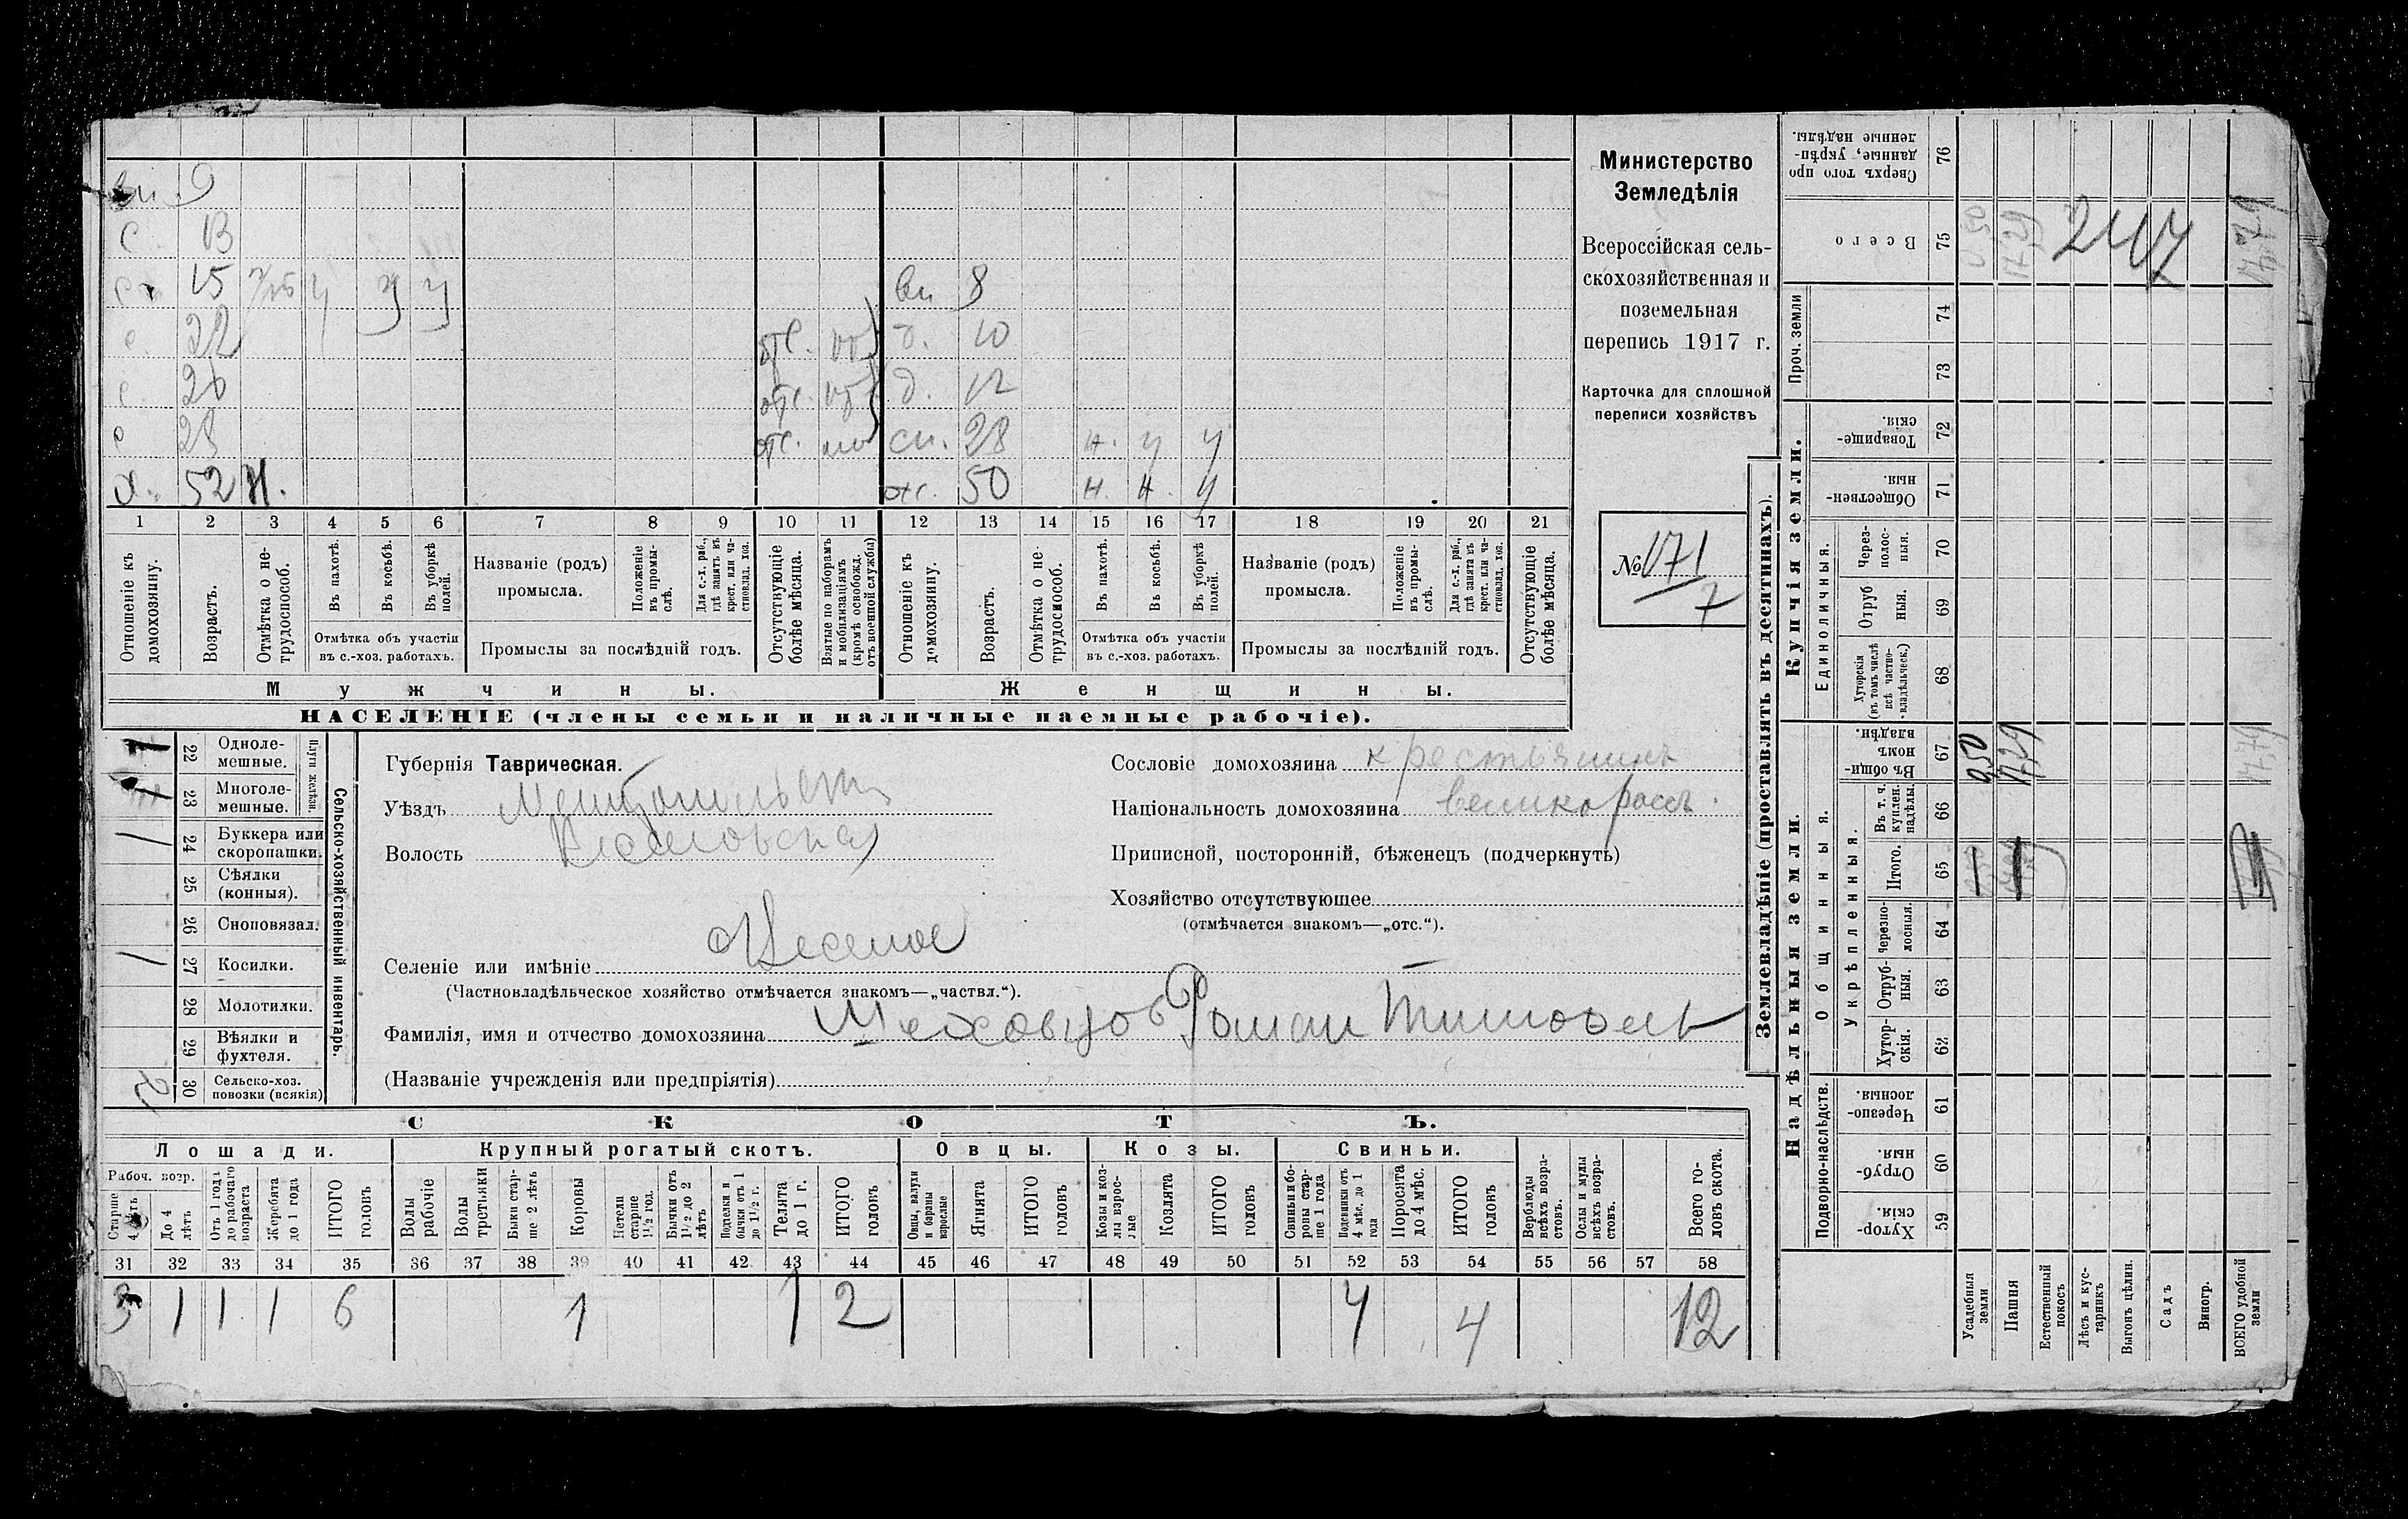 вн. 9
с. 13
с. 15
с. 22 отс.
с. 26 отс.
с. 28 отс.
х. 52 н.
вн 8
д. 10
д. 12
сн. 28 н. у у
ж. 50 н. н. у
1 2 3 4 5 6 7 8 9 10 11 12 13 14 15 16 17 18 19 20 21
Отношеніе къ домохозяину.
Возрастъ.
Отмѣтка о не-трудоспособ.
Въ пахотѣ.
Въ косьбѣ.
Въ уборкѣ полей.
Отмѣтка объ участіи
въ с.-хоз. работахъ.
Названіе (родъ)
промысла.
Положеніе въ промы-слѣ.
Для с.-х. раб., гдѣ занятъ въ крест. или ча-стновлад. хоз.
Промыслы за послѣдній годъ.
Отсутствующіе болѣе мѣсяца.
Взятые по наборамъ и мобилизаціямъ (кромѣ освобожд. отъ военной службы)
Отношеніе къ домохозяину.
Возрастъ.
Отмѣтка о не-трудоспособ.
Въ пахотѣ.
Въ косьбѣ.
Въ уборкѣ полей.
Отмѣтка объ участіи
въ с.-хоз. работахъ.
Названіе (родъ)
промысла.
Положеніе въ промы-слѣ.
Для с.-х. раб., гдѣ занята въ крест. или ча-стновлад. хоз.
Промыслы за послѣдній годъ.
Отсутствующіе болѣе мѣсяца.
Мужчины. Женщины.
НАСЕЛЕНІЕ (члены семьи и наличные наемные рабочіе).
Министерство
Земледѣлія
Всероссійская сель-
скохозяйственная и
поземельная
перепись 1917 г.
Карточка для сплошной
переписи хозяйствъ
№ 171
7
Сельско-хозяйственный инвентарь.
Плуги желѣзн.
22 Одноле-мешные. 1
23 Многоле-мешные. 1
24 Буккера или скоропашки. 1
25 Сѣялки (конныя).
26 Сноповязал.
27 Косилки. 1
28 Молотилки.
29 Вѣялки и фухтеля.
30 Сельско-хоз. повозки (всякія) 2
Губернія Таврическая.
Уѣздъ Мелитопольскій
Волость Веселовская
Селеніе или имѣніе Веселое
(Частновладѣльческое хозяйство отмѣчается знакомъ—„частвл.“).
Фамилія, имя и отчество домохозяина Меховцов Роман
(Названіе учрежденія или предпріятія)
Сословіе домохозяина крестьянинъ
Національность домохозяина великоросъ.
Приписной, посторонній, бѣженецъ (подчеркнуть)
Хозяйство отсутствующее
(отмѣчается знакомъ—„отс.“).
СКОТЪ.
Лошади. Крупный рогатый скотъ. Овцы. Козы. Свиньи.
Рабоч. возр.
Старше 4 лѣтъ
До 4 лѣтъ
Отъ 1 года до рабочаго возраста
Жеребята до 1 года
ИТОГО головъ
Волы рабочіе
Волы третьяки
Быки стар-ше 2 лѣтъ
Коровы
Нетели старше 1½ год.
Бычки отъ 1½ до 2 лѣтъ
Подтелки и бычки отъ 1 до 1½ г.
Телята до 1 г.
ИТОГО головъ
Овцы, валухи и бараны взрослые
Ягнята
ИТОГО головъ
Козы и коз-лы взрос-лые
Козлята
ИТОГО головъ
Свиньи и бо-ровы стар-ше 1 года
Подсвинки отъ 4 мѣс. до 1 года
Поросята до 4 мѣс.
ИТОГО головъ
Верблюды всѣхъ возра-стовъ.
Ослы и мулы всѣхъ возра-стовъ.
Всего го-ловъ скота.
31 32 33 34 35 36 37 38 39 40 41 42 43 44 45 46 47 48 49 50 51 52 53 54 55 56 57 58
3 1 1 1 6 1 1 2 4 4 12
Землевладѣніе (проставлять въ десятинахъ).
Надѣльныя земли. Купчія земли. Проч. земли
Подворно-наслѣдств.
Общинныя.
Укрѣпленныя.
Единоличныя.
Хутор-скія. 59
Отруб-ныя. 60
Черезпо-лосныя. 61
Хутор-скія. 62
Отруб-ныя. 63
Черезпо-лосныя. 64
Итого. 65
Въ т. ч. куплен. надѣлы. 66
Въ общи-номъ владѣн. 67
Хуторскія (въ томъ числѣ всѣ частно-владѣльческ.) 68
Отруб ныя. 69
Через-полос-ныя. 70
Обществен-ныя. 71
Товарище-скія. 72
73
74
Всего 75
Сверхъ того про данные, укрѣп-ленные надѣлы. 76
Усадебныя земли 0,50
Пашня 17,29
Естественный покосъ
Лѣсъ и кус-тарникъ
Выгонъ цѣлин.
Садъ
Виногр.
ВСЕГО удобной земли 17,79